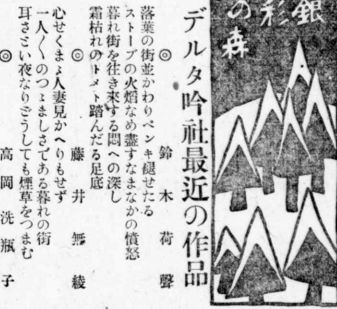 銀彩の森
デルタ吟社最近の作品
◎ 鈴木荷聲
落葉の街並かわりペンキ褪せたる
ストーブの火焔なめ盡すなまなかの憤怒
暮れ街を往き来する悶への深し
霜枯れのトメト踏んだる足底
◎ 藤井無綾
心せくまゝ人妻見かへりもせず
一人〱のつゝましさである暮れの街
耳さとい夜なりさうしても煙草をつまむ
◎ 高岡洗瓶子